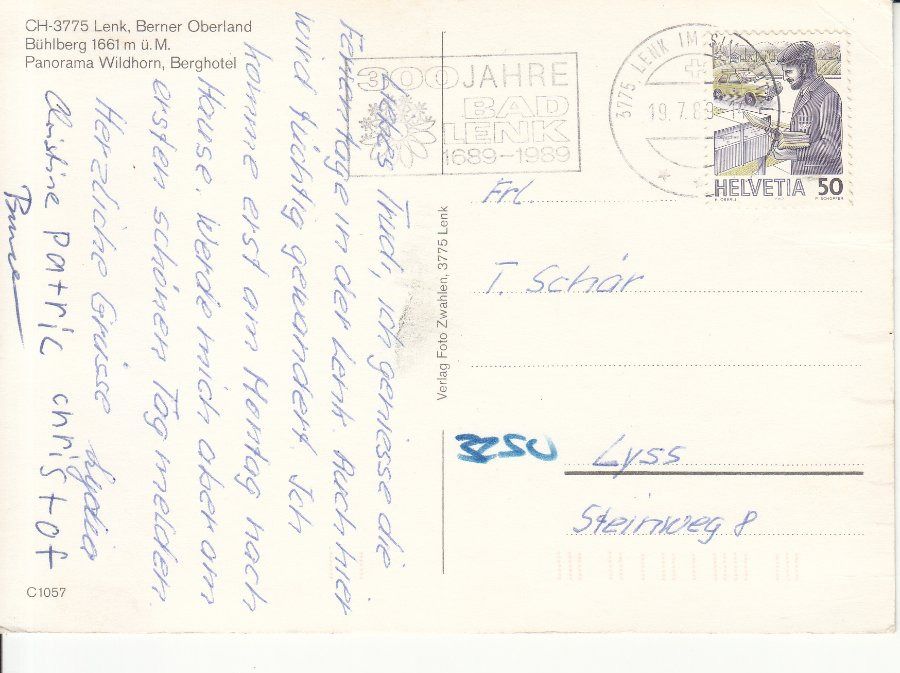 CH-3775 Lenk, Berner Oberland
Bühlberg 1661 m ü. M.
Panorama Wildhorn, Berghotel
Liebes Trudi, ich geniesse die
Ferientage in der Lenk. Auch hier
wird tüchtig gewandert. Ich
komme erst am Montag nach
Hause. Werde mich aber am
ersten schönen Tag melden.
Herzliche Grüsse Lydia
Christine Patric christof
C1057
Verlag Foto Zwahlen, 3775 Lenk
300 JAHRE
BAD
LENK
1689-1989
3775 LENK IM SI
19.7.89
HELVETIA 50
Frl.
T. Schär
3250 Lyss
Steinweg 8